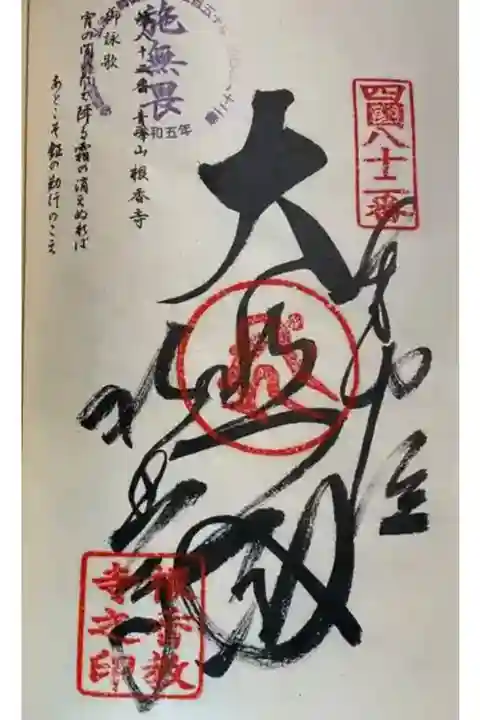 四國八十二番
奉納
大悲殿
根香寺
根香教
寺之印
施無畏
和五年
第八十二番 青峰山 根香寺
御詠歌
宵の間の降る霜の消えぬれば
あとこそ鐘の勤行のこえ